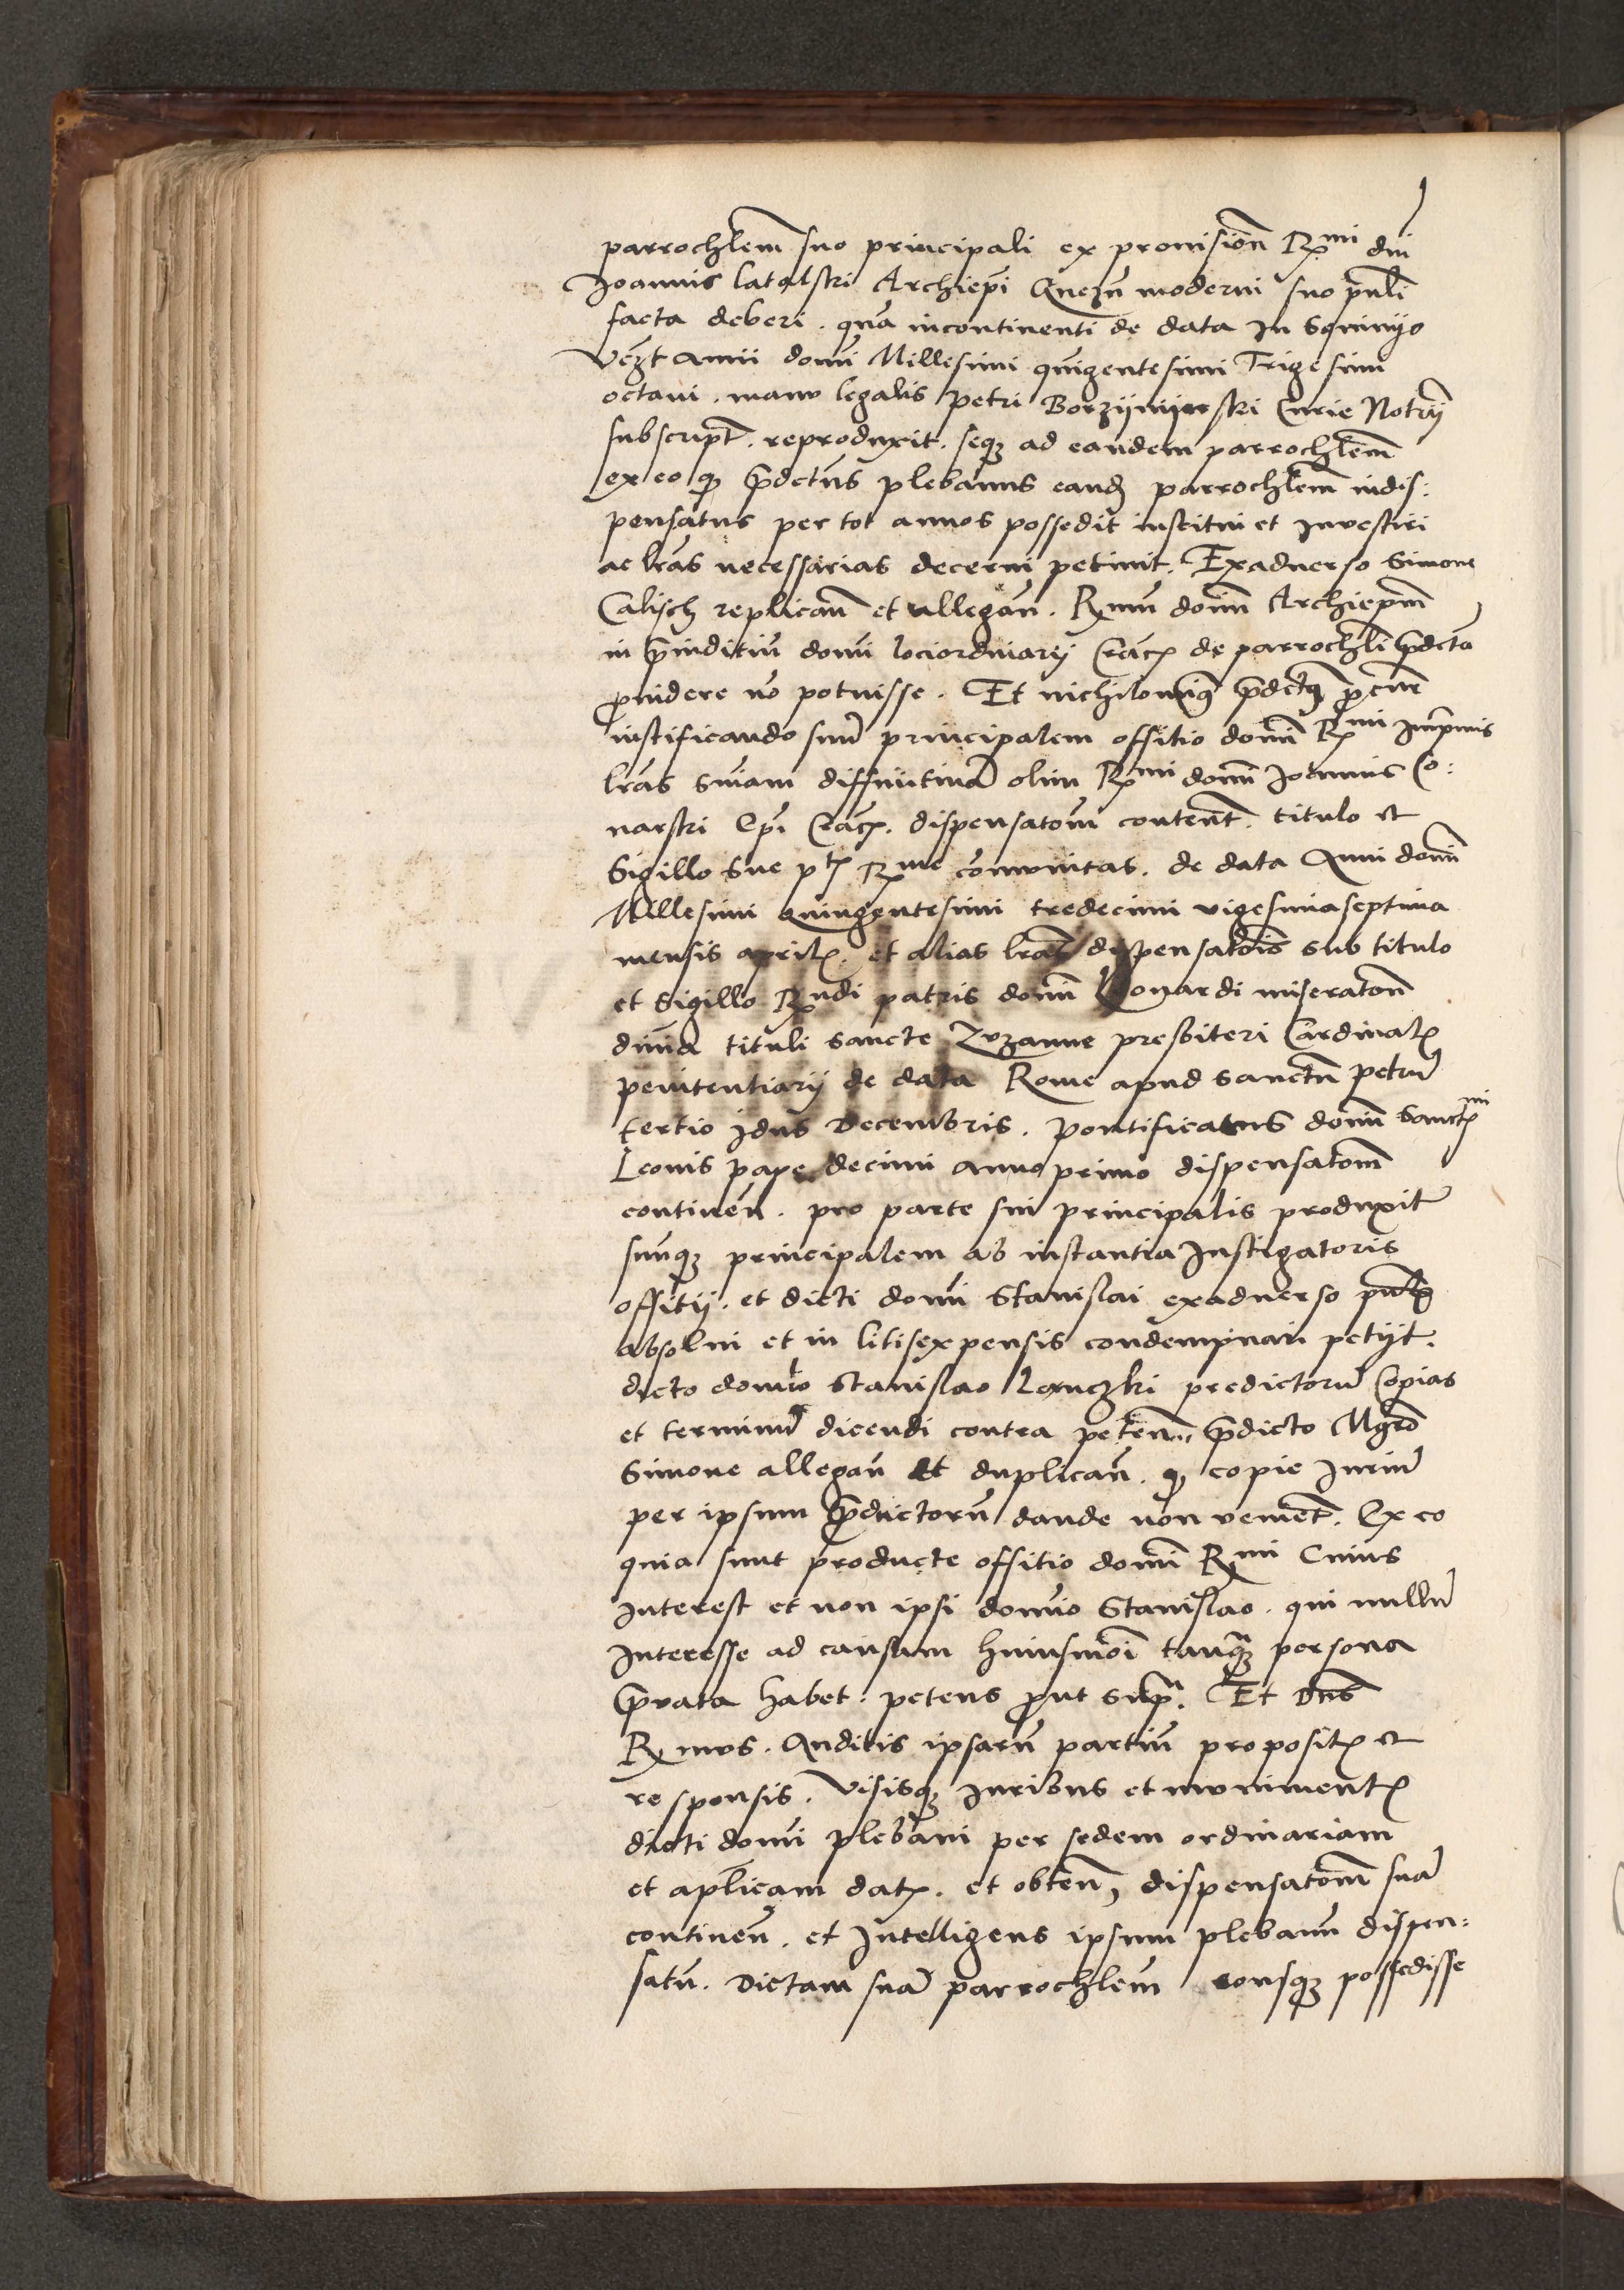 parrochlem suo principali ex provision Rmi dni
Joannis latalski Archiepi Gnezn moderni suo prncli
facta deberi. qua incontinenti de data in
anni domni Millesimi quigentesimi Trigesimi
octavi. manu legalis petri Curie Notrij
subscript. reproduxit. seqz ad eandem parrochlem
ex eo qz prdctus plebanus eandz parrochlem indis:
pensatus per tot annos possedit institui et Investiri
ac lras necessarias decerni petivit. Exadverso Simone
Calisch replican et allegan. Rmum domn Archiepm
in preiuditiu domni lociordinarij Crac de parrochli prdcta
providere no potuisse. Et nichilominus
iustificando suu principalem offitio domni Rmi Inprimis
lras sniam diffinitiva olim Rmi domni Joannis Co:
narski Epi Crac. dispensatom content. titulo et
Sigillo sue Rme comunitas. de data Anni domni
Millesimi quingentesimi tredecimi vigesimaseptima
mensis aprilis. et alias lras dispensatois sub titulo
et Sigillo Rndi patris domni Leonardi miseraton
divina tituli sancte Zuzanne presbiteri Cardinalis
penitentiarij de data Rome apud sanctu petru
tertio Idus Decembris. pontificatus domni Sanctmi
Leonis pape decimi anno primo dispensatom
continen. pro parte sui principalis produxit
suuqz principalem ab instantia Instigatoris
offitij. et dicti domni Stanislai exadverso
absolvi et in litisexpensis condempnari petijt.
dicto domno Stanislao predictoru Copias
et terminu dicendi contra peten. prdicto Mgro
Simone allegan et duplican. qz copie Iuriu
per ipsum prductoru dande non venient. Ex eo
quia sunt producte offitio domni Rmi Cuius
Interest et non ipsi domno Stanislao. qui nullu
Interesse ad causam huiusmoi tanqz persona
privata habet: petens prout supra. Et Dns
Rmus. Auditis ipsaru partiu propositis et
responsis. Visisqz Iuribus et munimentis
dicti domni plebani per sedem ordinariam
et aplicam datis. et obten, dispensatom sua
continen. et Intelligens ipsum plebanu dispen:
satu. Dictam sua parrochlem eousqz possedisse